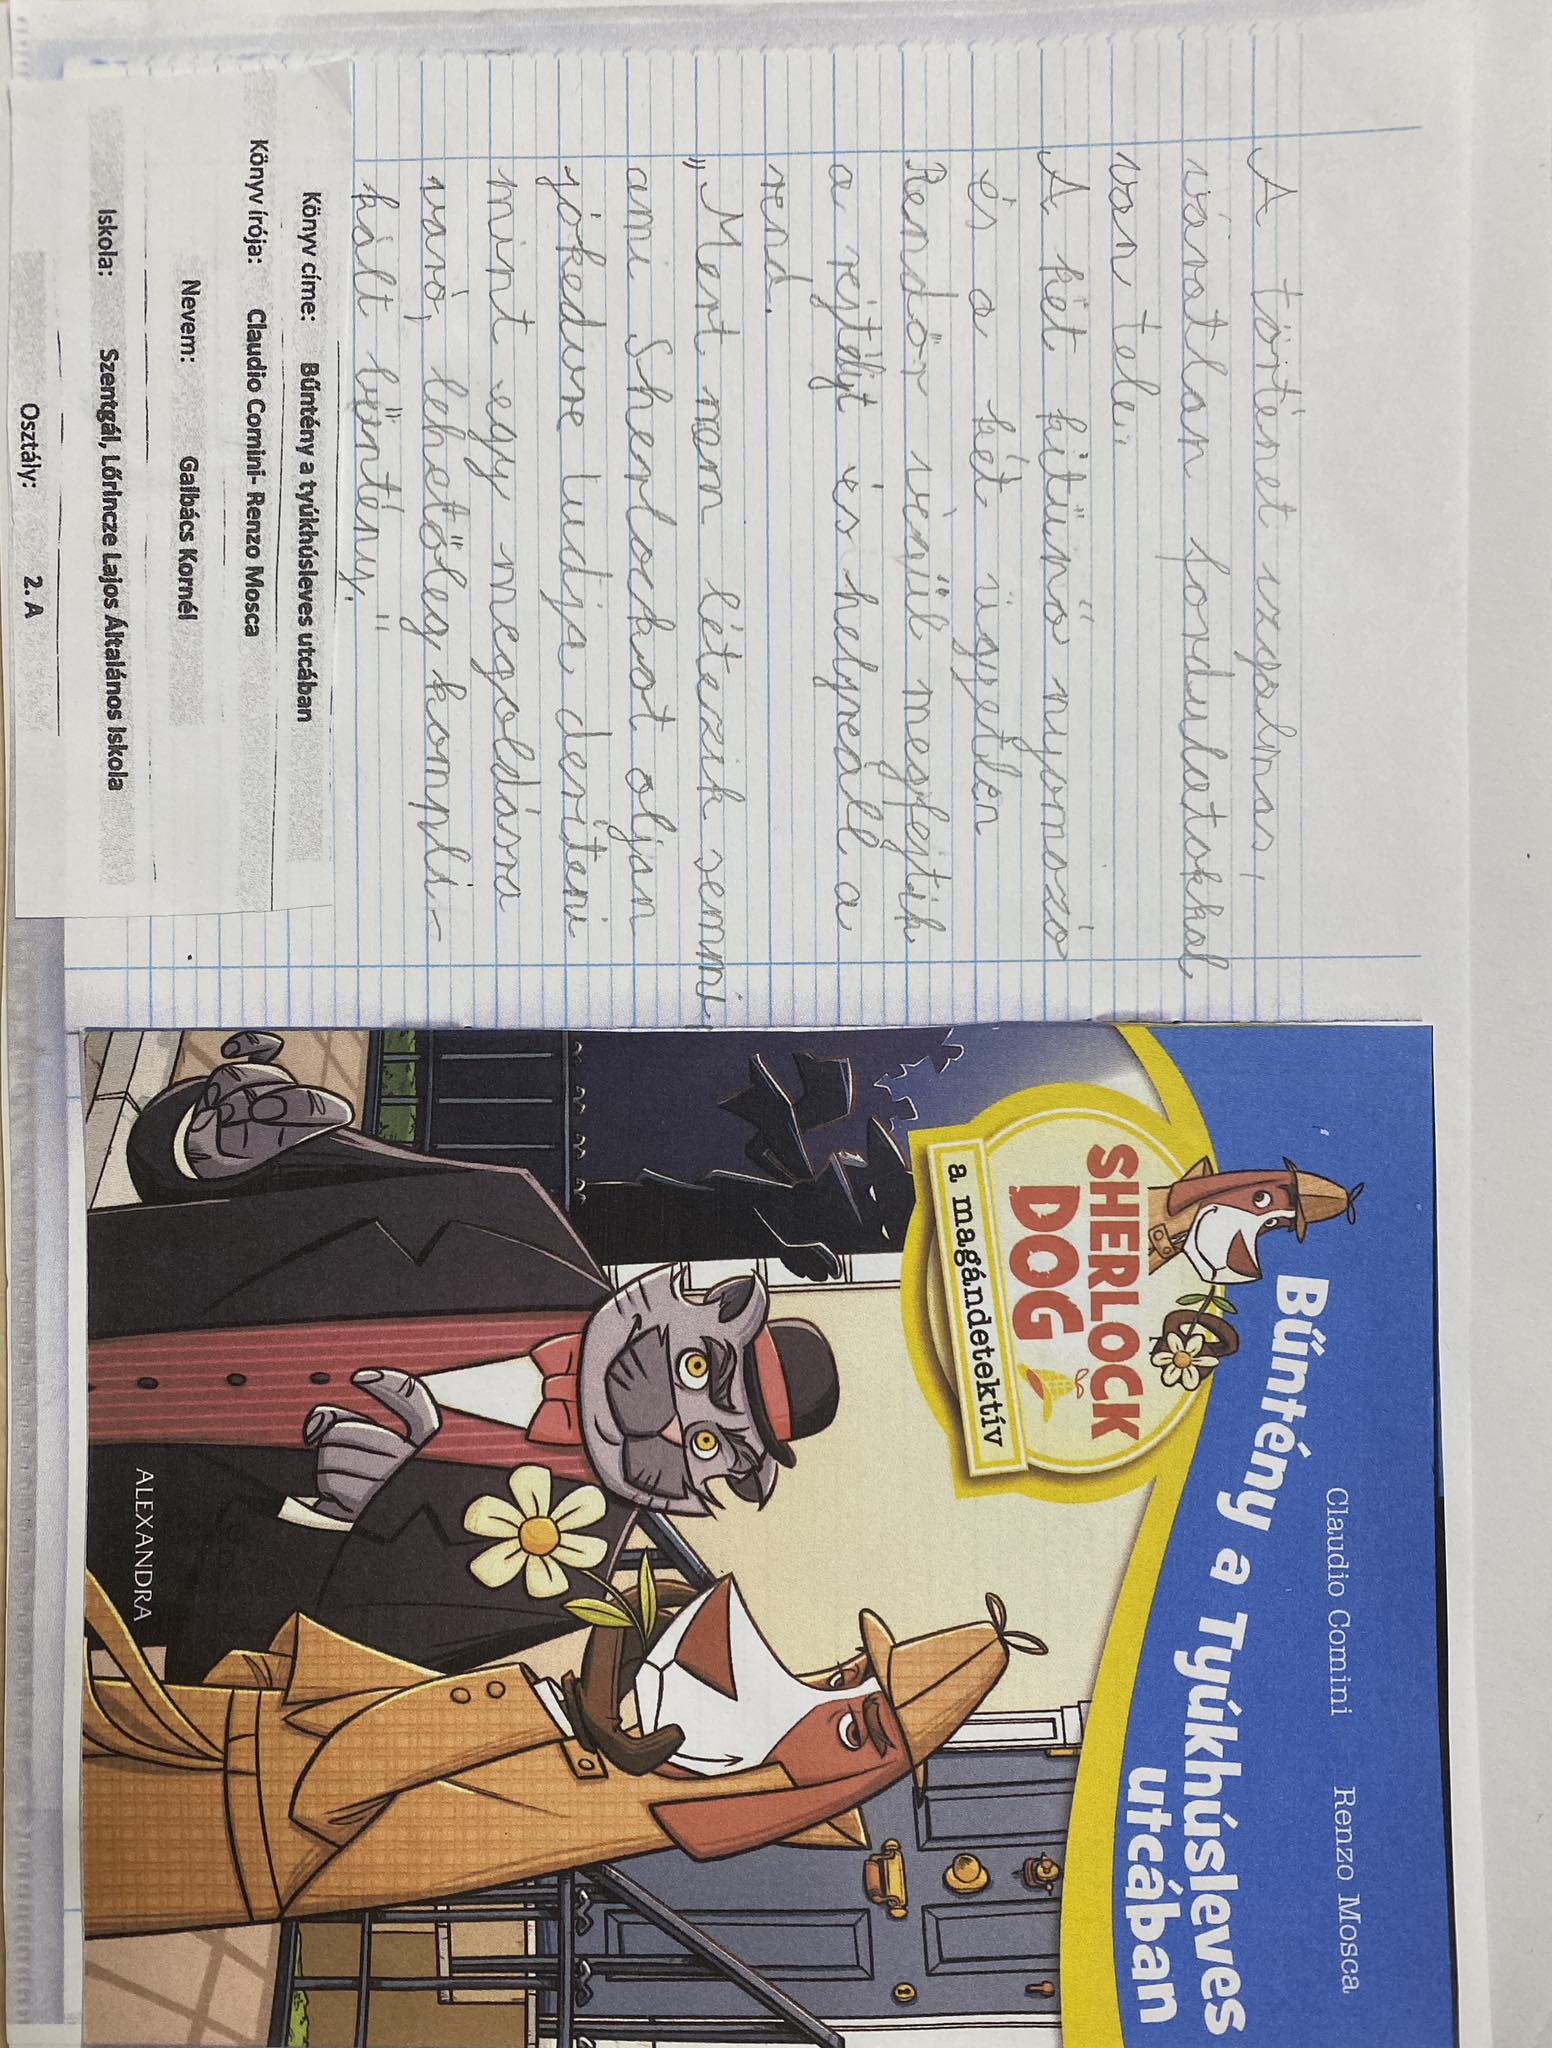 A történet izgalmas,
váratlan fordulatokkal
van tele.
A két kitűnő nyomozó
és a két ügyetlen
Rendőr végül megfejtik
a rejtélyt és helyreáll a
rend.
„Mert nem létezik semmi,
ami Sherlockot oljan
jókedvre tudja deríteni
mint egy megoldásra
váró, lehetőleg kompli-
kált bűntény."
Könyv címe: Bűntény a tyúkhúsleves utcában
Könyv írója: Claudio Comini- Renzo Mosca
Nevem: Galbács Kornél
Iskola: Szentgál, Lőrincze Lajos Általános Iskola
Osztály: 2. A
Claudio Comini Renzo Mosca
Bűntény a Tyúkhúsleves
utcában
SHERLOCK
DOG
a magándetektív
ALEXANDRA